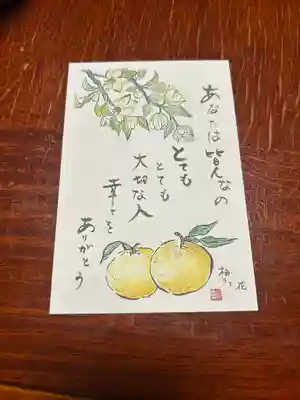 あなたは皆んなの
とても
とても
大切な人
幸せを
ありがとう
柚子
花